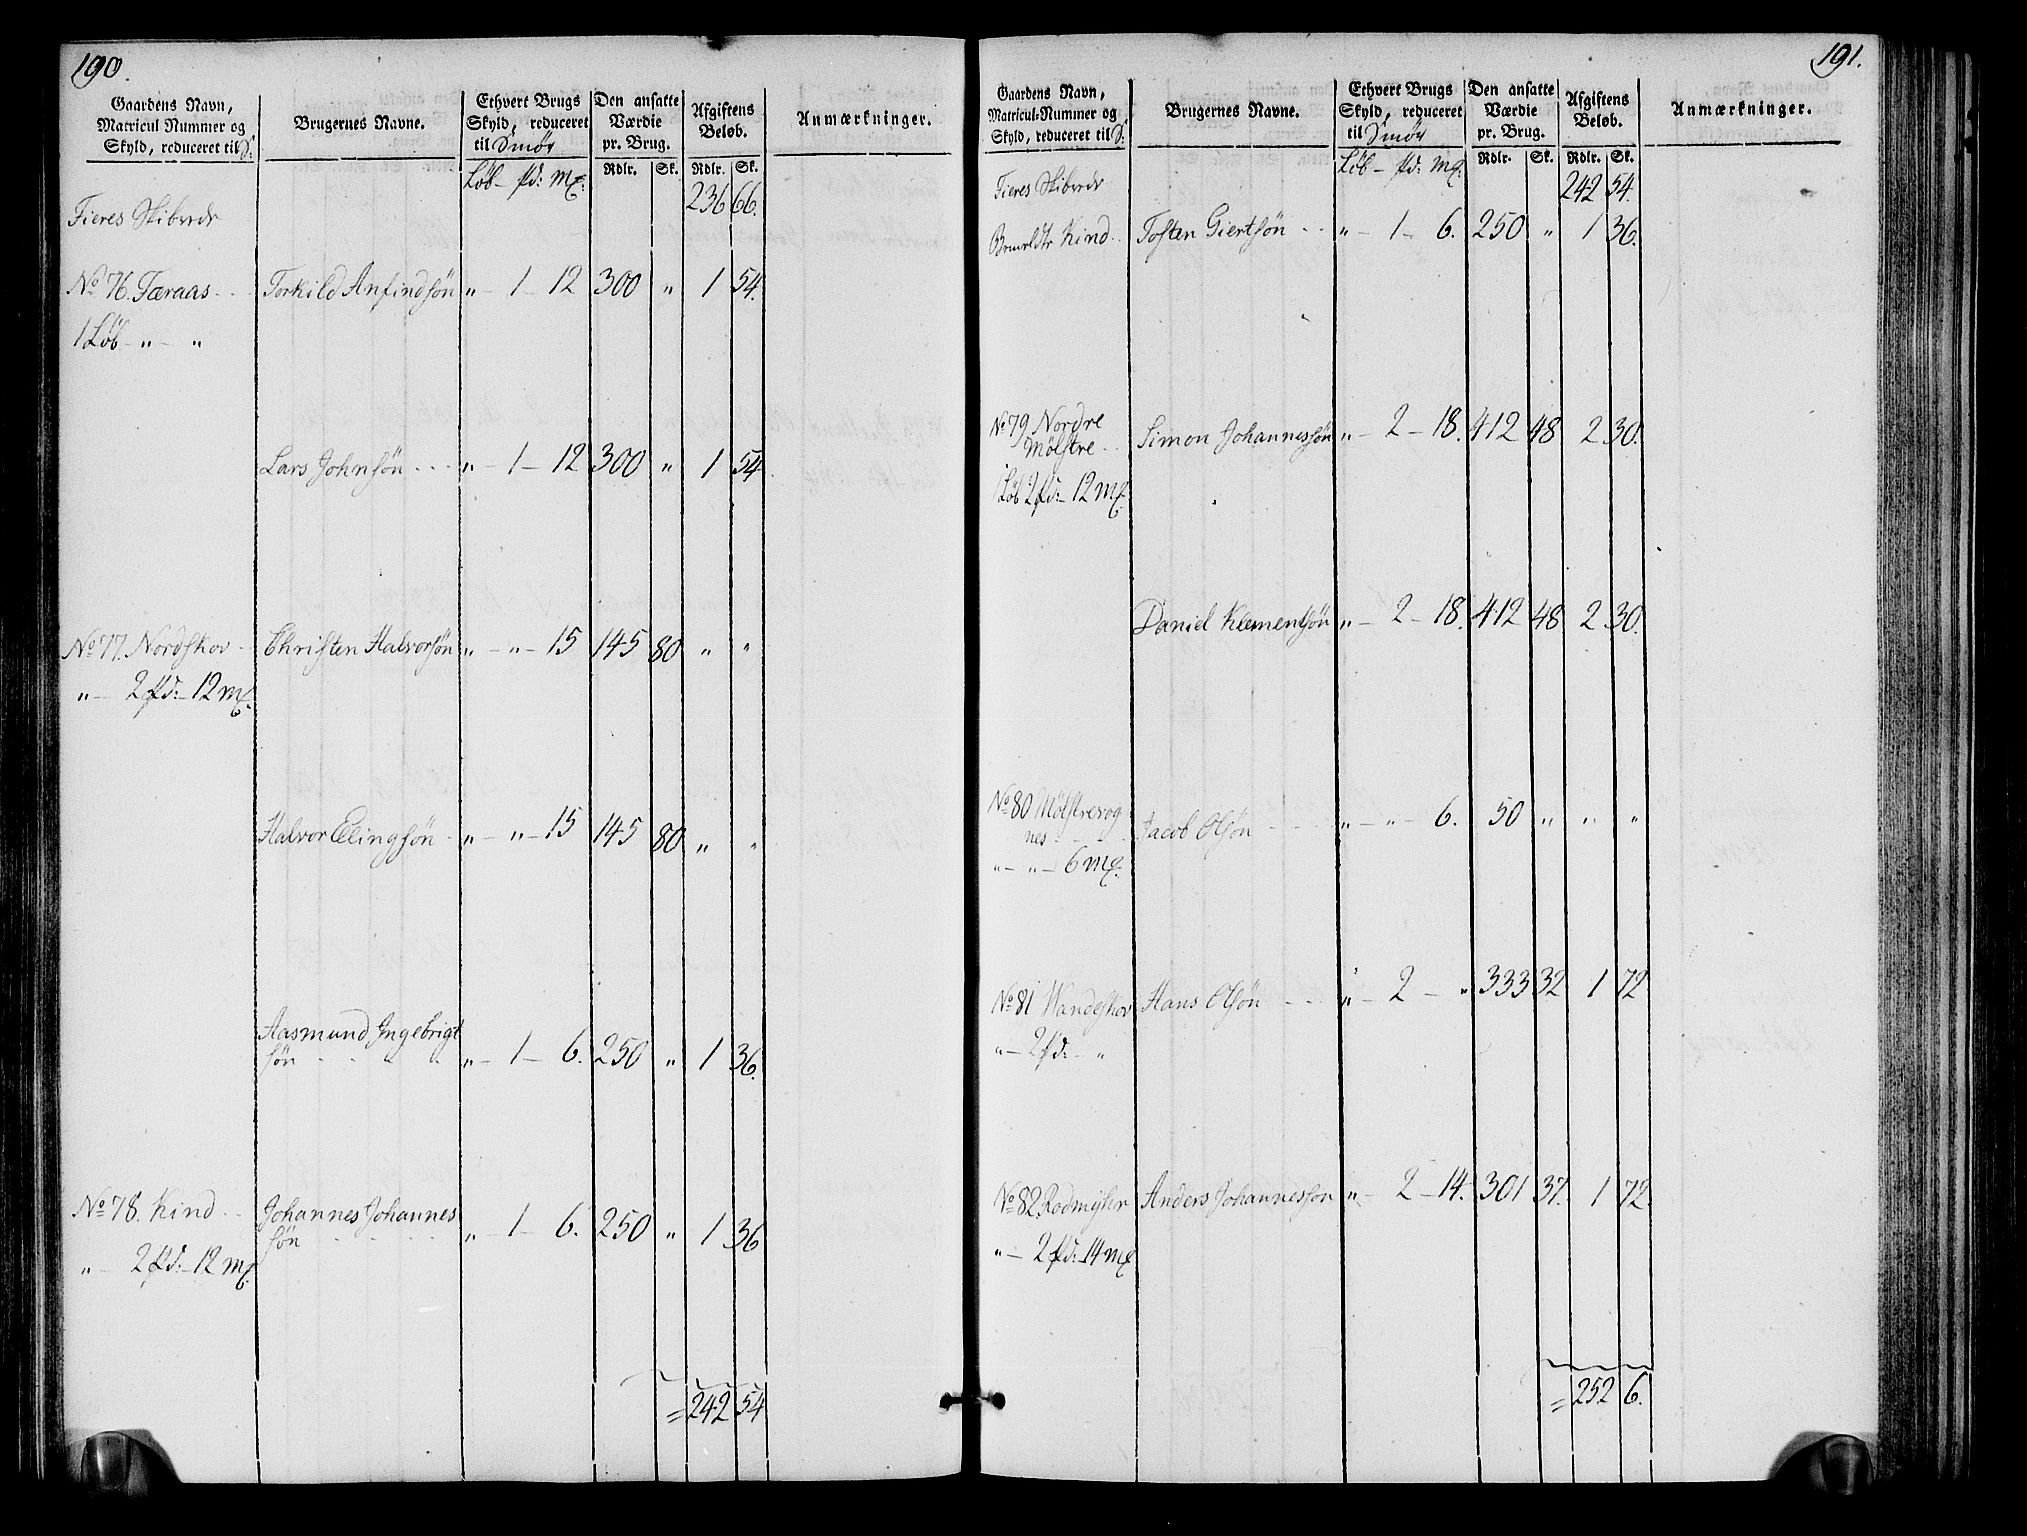 190.
Gaardens Navn,
Matricul Nummer og
Skyld, reduceret til S:
Brugernes Navne.
Ethvert Brugs
Skyld, reduceret
til Smør
Den ansatte
Værdie
pr. Brug.
Afgiftens
Beløb.
Anmærkninger.
Løb – pd: mk: Rdlr. Sk. Rdlr. Sk.
236 66.
Fieres Skibrede
No 76. Færaas Torkild Anfindsøn „ – 1 – 12 300 „ 1 54.
1 Løb – „ – „
Lars Johnsøn „ – 1 – 12 300 „ 1 54
No 77. Nordskov Christen Halvorsøn „ – „ – 15 145 80 „ „
„ – 2 pd: – 12 mk.
Halvor Elingsøn „ – „ – 15 145 80 „ „
Aasmund Ingebrigt
søn „ – 1 – 6. 250 „ 1 36.
No 78. Kind Johannes Johannes
søn „ – 1 – 6. 250 „ 1 36
„ – 2 pd: – 12 mk.
= 242 54
191.
Gaardens Navn,
Matricul-Nummer og
Skyld, reduceret til S:
Brugernes Navne.
Ethvert Brugs
Skyld, reduceret
til Smør
Den ansatte
Værdie
pr. Brug.
Afgiftens
Beløb.
Anmærkninger.
Løb – pd: mk. Rdlr. Sk. Rdlr. Sk.
Fieres Skibrede 242 54.
Kind Tosten Giertsøn „ – 1 – 6. 250 „ 1 36.
No 79 Nordre
Mølstre Simon Johannessøn „ – 2 – 18. 412 48 2 30.
1 Løb 2 pd: – 12 mk.
Daniel Klementsøn „ – 2 – 18. 412 48 2 30.
No 80 Mølstrevog
nes Jacob Olsøn „ – „ – 6. 50 „ „ „
„ – „ – 6 mk.
No 81 Vandeskov Hans Olsøn „ – 2 – „ 333 32 1 72
„ – 2 pd: – „
No 82. Rodmyhr Anders Johannesson „ – 2 – 14. 301 37. 1 72
„ – 2 pd: – 14 mk
= 252 6.